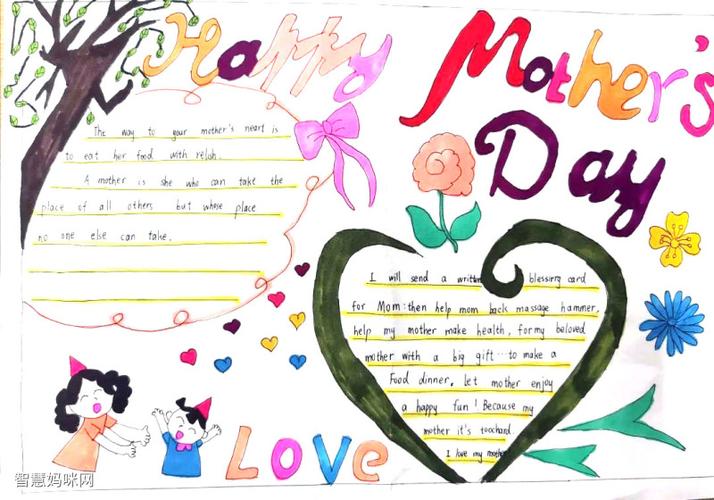 Happy Mother's
Day
The way to your mother's heart is
to eat her food with relsh.
A mother is she who can take the
place of all others but whose place
no one else can take.
I will send a written blessing card
for Mom: then help mom back massage hammer,
help my mother make health, for my beloved
mother with a big gift... to make a
Food dinner. Let mother enjoy
a happy fun! Because my
mother it's toochand.
I love my mother
LOVe
智慧妈咪网